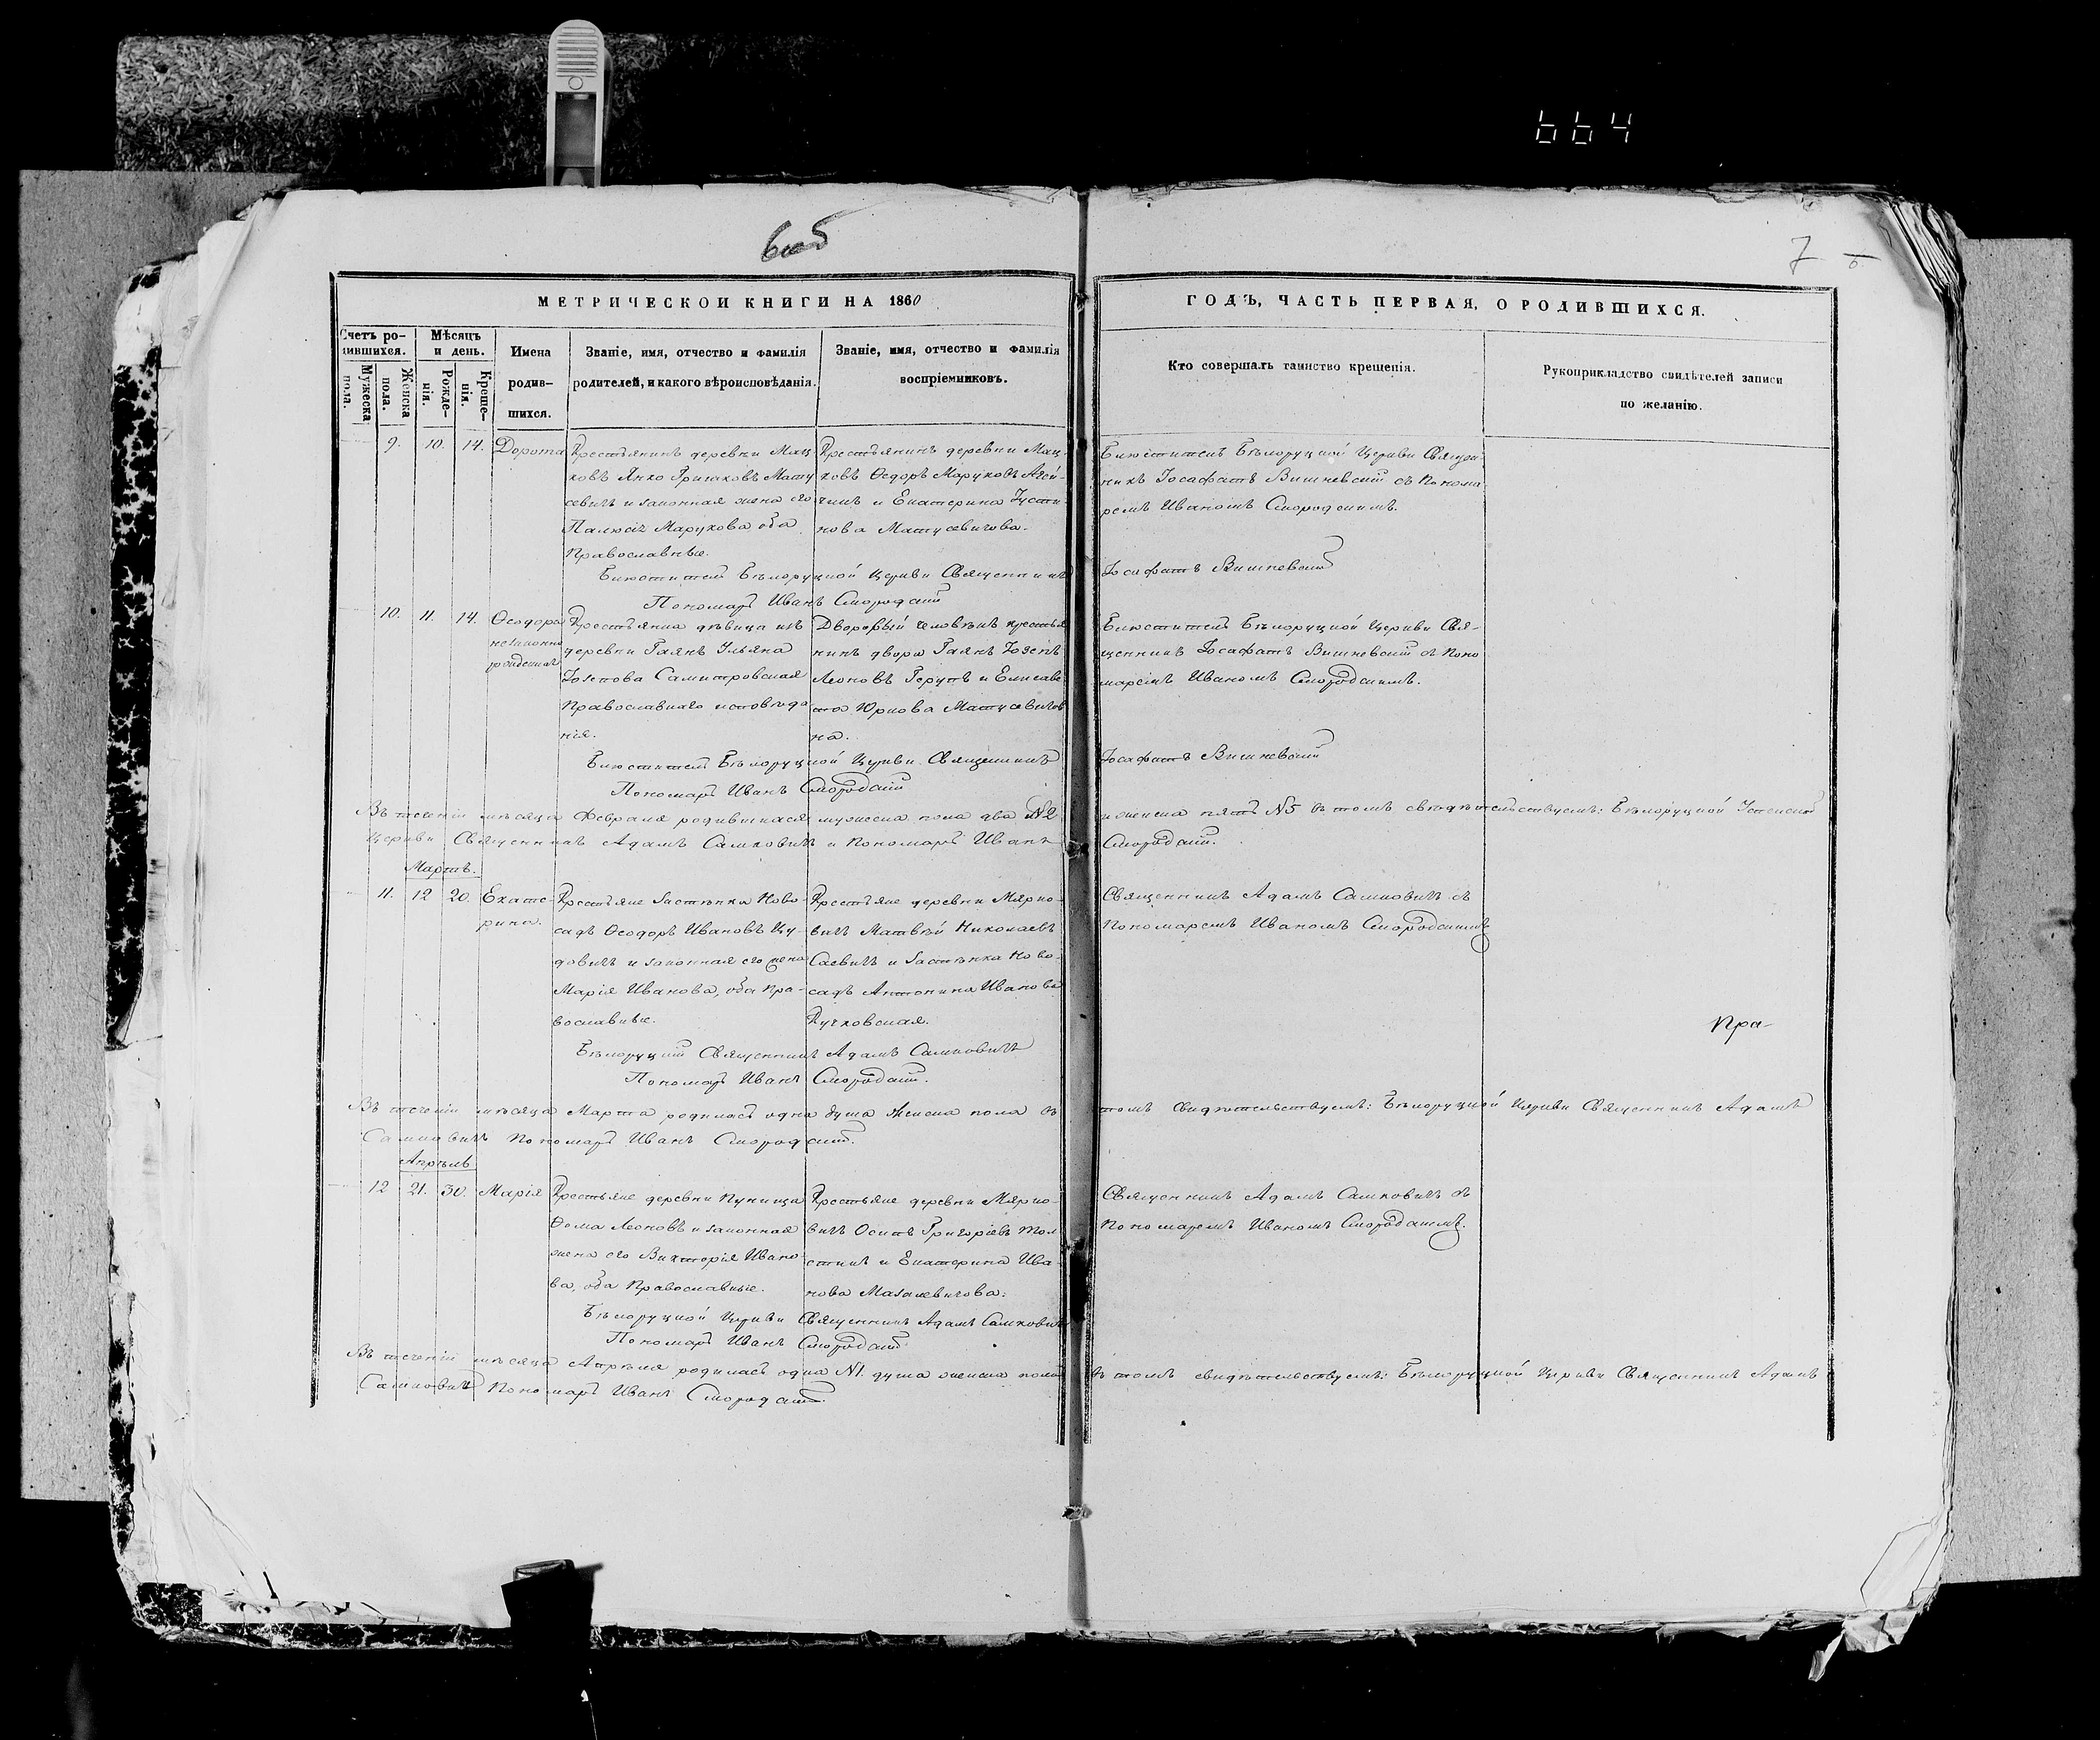 664
6об
7
МЕТРИЧЕСКОЙ КНИГИ НА 1860
ГОДЪ, ЧАСТЬ ПЕРВАЯ, О РОДИВШИХСЯ.
Счетъ родившихся.
Мужеска пола.
Женска пола.
Мѣсяцъ и день.
Рожденія.
Крещенія.
Имена родившихся.
Званіе, имя, отчество и фамилія
родителей, и какого вѣроисповѣданія.
Званіе, имя, отчество и фамилія
воспріемниковъ.
Кто совершалъ таинство крещенія.
Рукоприкладство свидѣтелей записи
по желанію.
9. 10. 14. Дорота
Крестьянинъ деревни Мац
ковъ Янко Григоковъ Мату
севичъ и законная жена его
Марукова, оба
Православные.
Крестьянинъ деревни Мац-
ковъ Ѳедоръ Маруковъ
и Екатерина Усти-
нова Матусевичова.
Блюститель Бѣлоруцкой Церкви Священ-
никъ Іосафатъ Вишневскій съ Понома
ремъ Иваномъ Смородскимъ.
Блюститель Бѣлоруцкой Церкви Священникъ Іосафатъ Вишневскій
Пономарь Иванъ Смородскій
10. 11. 14. Ѳеодора
незаконно
рожденная
Крестьянка дѣвица изъ
деревни Гаянъ Ульяна
Іозепова
Православнаго исповѣда
нія.
Дворовый человѣкъ крестья
нинъ двора Гаянъ Іозепъ
Леоновъ и Елисаве
та Юркова Матусевичов
на.
Блюститель Бѣлоруцкой Церкви Свя-
щенникъ Іосафатъ Вишневскій съ Поно
маремъ Иваномъ Смородскимъ.
Блюститель Бѣлоруцкой Церкви Священникъ Іосафатъ Вишневскій
Пономарь Иванъ Смородскій
Въ теченіи мѣсяца Февраля родившихся мужеска пола два №2 и женска пять №5 въ томъ свидѣтельствуемъ: Бѣлоруцкой Успенской
Церкви Священникъ Адамъ Самковичъ и Пономарь Иванъ Смородскій.
Мартъ.
11. 12 20. Екате-
рина.
Крестьяне Застѣнка Ново-
садъ Ѳеодоръ Ивановъ Цу-
довичъ и законная его жена
Марія Иванова, оба Пра-
вославные.
Крестьяне деревни Мярко-
вичъ Матвѣй Николаевъ
Саевичъ и Застѣнка Ново-
садъ Антонина Иванова
Кучковская.
Священникъ Адамъ Самковичъ съ
Пономаремъ Иваномъ Смородскимъ
Пра-
Бѣлоруцкій Священникъ Адамъ Самковичъ
Пономарь Иванъ Смородскій.
Въ теченіи мѣсяца Марта родилась одна душа женска пола въ томъ свидѣтельствуемъ: Бѣлоруцкой Церкви Священникъ Адамъ
Самковичъ Пономарь Иванъ Смородскій.
Апрѣль
12 21. 30. Марія
Крестьяне деревни Пуница
Ѳома Леоновъ и законная
жена его Викторія Ивано-
ва, оба Православные.
Крестьяне деревни Мярко-
вичъ Осипъ Григоріевъ Тол
стикъ и Екатерина Ива-
нова Мазалевичова.
Священникъ Адамъ Самковичъ съ
Пономаремъ Иваномъ Смородскимъ.
Бѣлоруцкой Церкви Священникъ Адамъ Самковичъ
Пономарь Иванъ Смородскій
Въ теченіи мѣсяца Апрѣля родилась одна №1. душа женска пола въ томъ свидѣтельствуемъ: Бѣлоруцкой Церкви Священникъ Адамъ
Самковичъ Пономарь Иванъ Смородскій